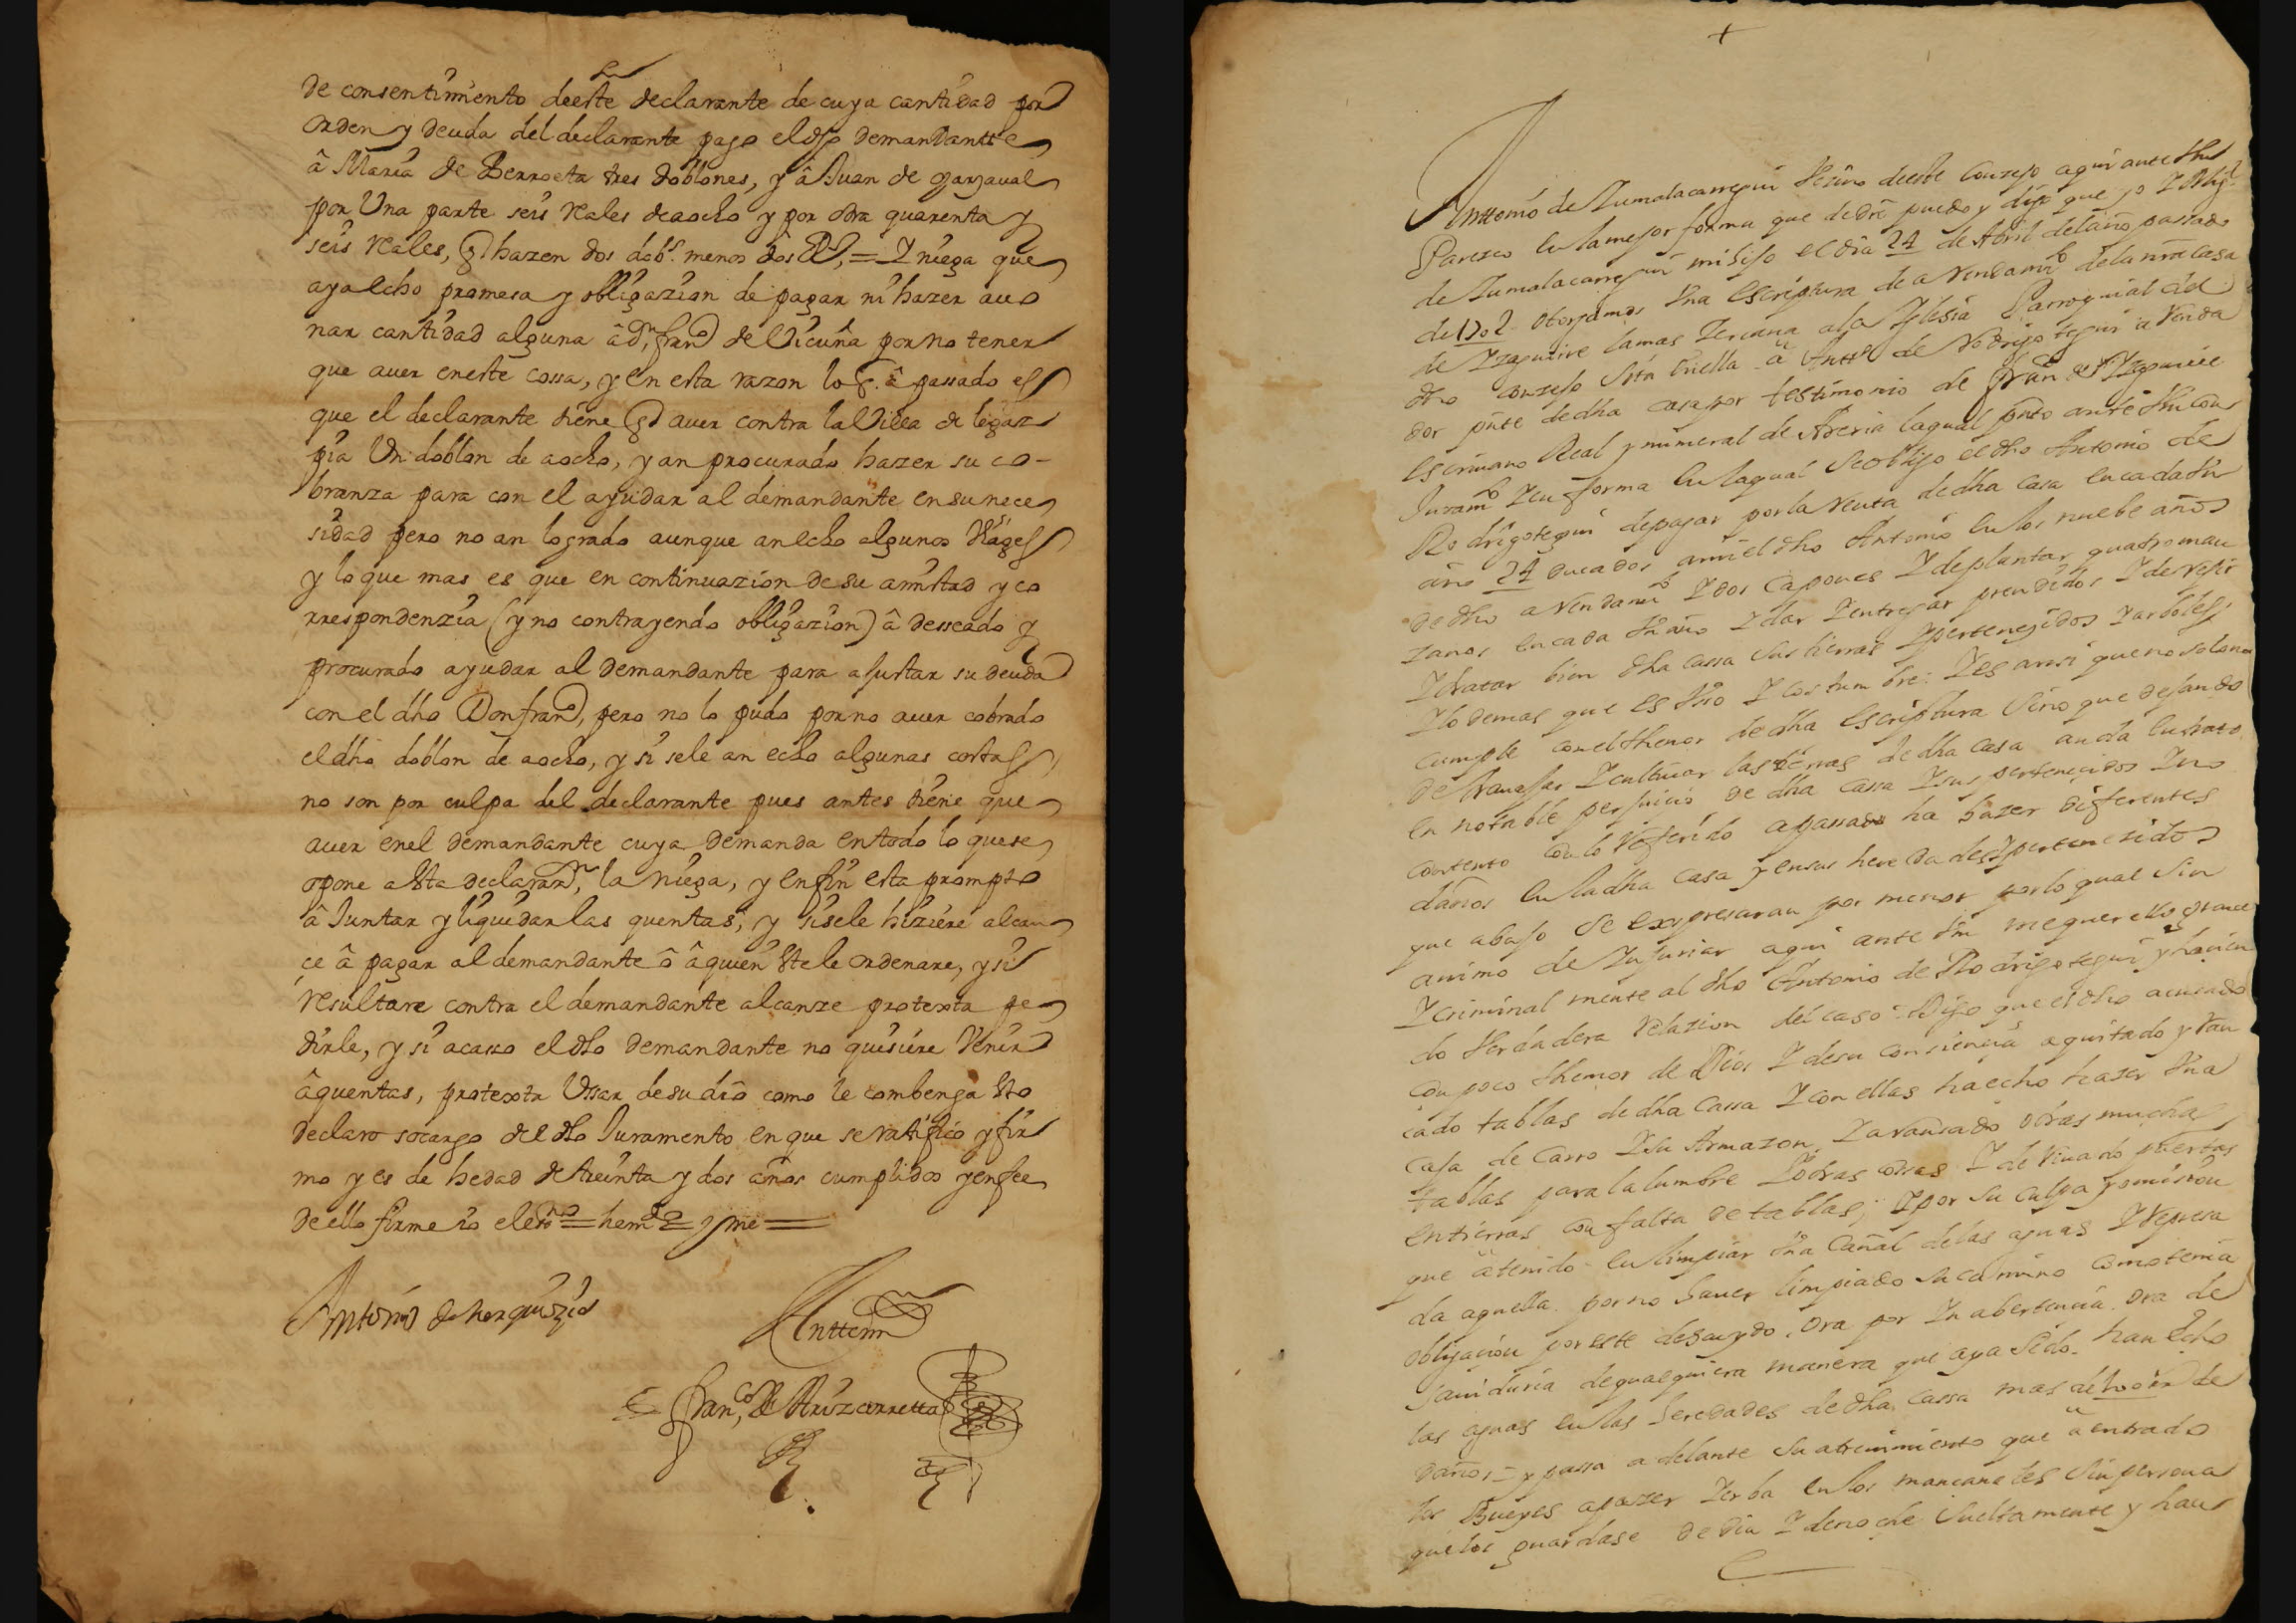 de consentimiento deeste declarante de cuya cantidad por
orden y deuda del declarante pago el dho demandantte
â Maria de Berroeta tres doblones, y â Juan de
por Una parte seis reales deaocho y por otra quarenta y
seis reales, q hazen dos dobs. menos dos Rs, = Y niega que
aya echo promesa y obligazion de pagar ni hazer auo
nar cantidad alguna â Dn, franco de Vicuña por no tener
que auer eneste cossa, y en esta razon lo q. â passado es
que el declarante tiene q auer contra la Villa de legaz
pia Un doblon de aocho, y an procurado hazer su co-
branza para con el ayudar al demandante en su nece
sidad pero no an logrado aunque an echo algunos Viages
y lo que mas es que en continuazion de su amistad y co
rrespondenzia (y no contrayendo obligazion) â desseado y
procurado ayudar al demandante para ajustar su deuda
con el dho Don franco, pero no lo pudo por no auer cobrado
el dho doblon de aocho, y si sele an echo algunas costas
no son por culpa del declarante pues antes tiene que
auer enel demandante cuya demanda entodo lo quese
opone a Esta declarazn, la niega, y enfin esta prompto
â Juntar y liquidar las quentas, y si sele hiziere alcan
çe â pagar al demandante ô â quien Este le ordenare, y si
resultare contra el demandante alcanze protexta pe
dirle, y si acasso el dho demandante no quisiere Venir
â quentas, protexta Ussar de su dro como le combenga Esto
declaro socargo del dho Juramento en que se ratifico y fir
mo y es de hedad de treinta y dos años cumplidos y enfee
de ello firme io el esno = hemdo = y me =
Antonio de
Anttemi
Franco, de Aruzcorretta
+
Anttonio de Zumalacarregui Vezino deeste Conzejo aqui ante Vm
Parezco en la mejor forma que de dro puedo y digo que yo Y Migl
de Zumalacarregui mi hijo el dia 24 de Abril del año passado
de 1702 otorgamos Vna escriptura de a Rendamto de la nra casa
de Yzaguirre la mas Zercana a la Yglesia Parroquial del
dho conzejo sita en ella â Antto de Rodrigotegui a Renda
dor pnte de dha casa por testimonio de Fran co de Yzaguirre
Escriuano Real y numeral de Areria la qual pnto ante Vm con
Juramto Y en forma en la qual se obligo el dho Antonio de
Rodrigotegui de pagar por la Renta de dha casa en cada Vn
año 24 ducados a mi el dho Antonio en los nuebe años
de dho a Rendamto Y dos Capones Y de plantar quatro man
zanos en cada Vn año Y dar Y entregar prendidos Y de
Y tratar bien dha cassa sus tierras Y perteneçidos Y arboles
Y lo demas que es Vso Y costumbre: Y es ansi que no solo no
cumple con el thenor de dha escriptura sino que dejando
de trauajar Y cultiuar las tierras de dha casa anda
en notable perjuicio de dha cassa Y sus perteneçidos Y no
contento con lo Referido a passado ha hazer diferentes
daños en la dha casa y en sus heredades Y pertenecidos
que abajo se expresaran por menor por lo qual sin
animo de Injuriar aqui ante Vm me querello graue
Y criminal mente al dho Antonio de Rodrigotegui y hacien
do Verdadera Relazion del caso = Digo que el dho acusado
con poco themor de Dios Y de su conciencia a quitado y
cado tablas de dha Cassa Y con ellas ha echo hazer Vna
caja de Carro Y su Armazon, Y otras muchas
tablas para la lumbre Y otras cosas Y de puertas
en tierras con falta de tablas; Y por su culpa y omision
que â tenido en limpiar Vna Cañal de las aguas Y
da aquella por no hauer limpiado su camino como tenia
obligacion por este descuydo, ora por In abertencia ora de
de qualquiera manera que aya sido han echo
las aguas en las heredades de dha Cassa mas de de
daños = y passa adelante su atreuimiento que â entrado
los Bueyes apazer Yerba en los mancanales sin persona
que los guardase de dia Y de noche sueltamente y han